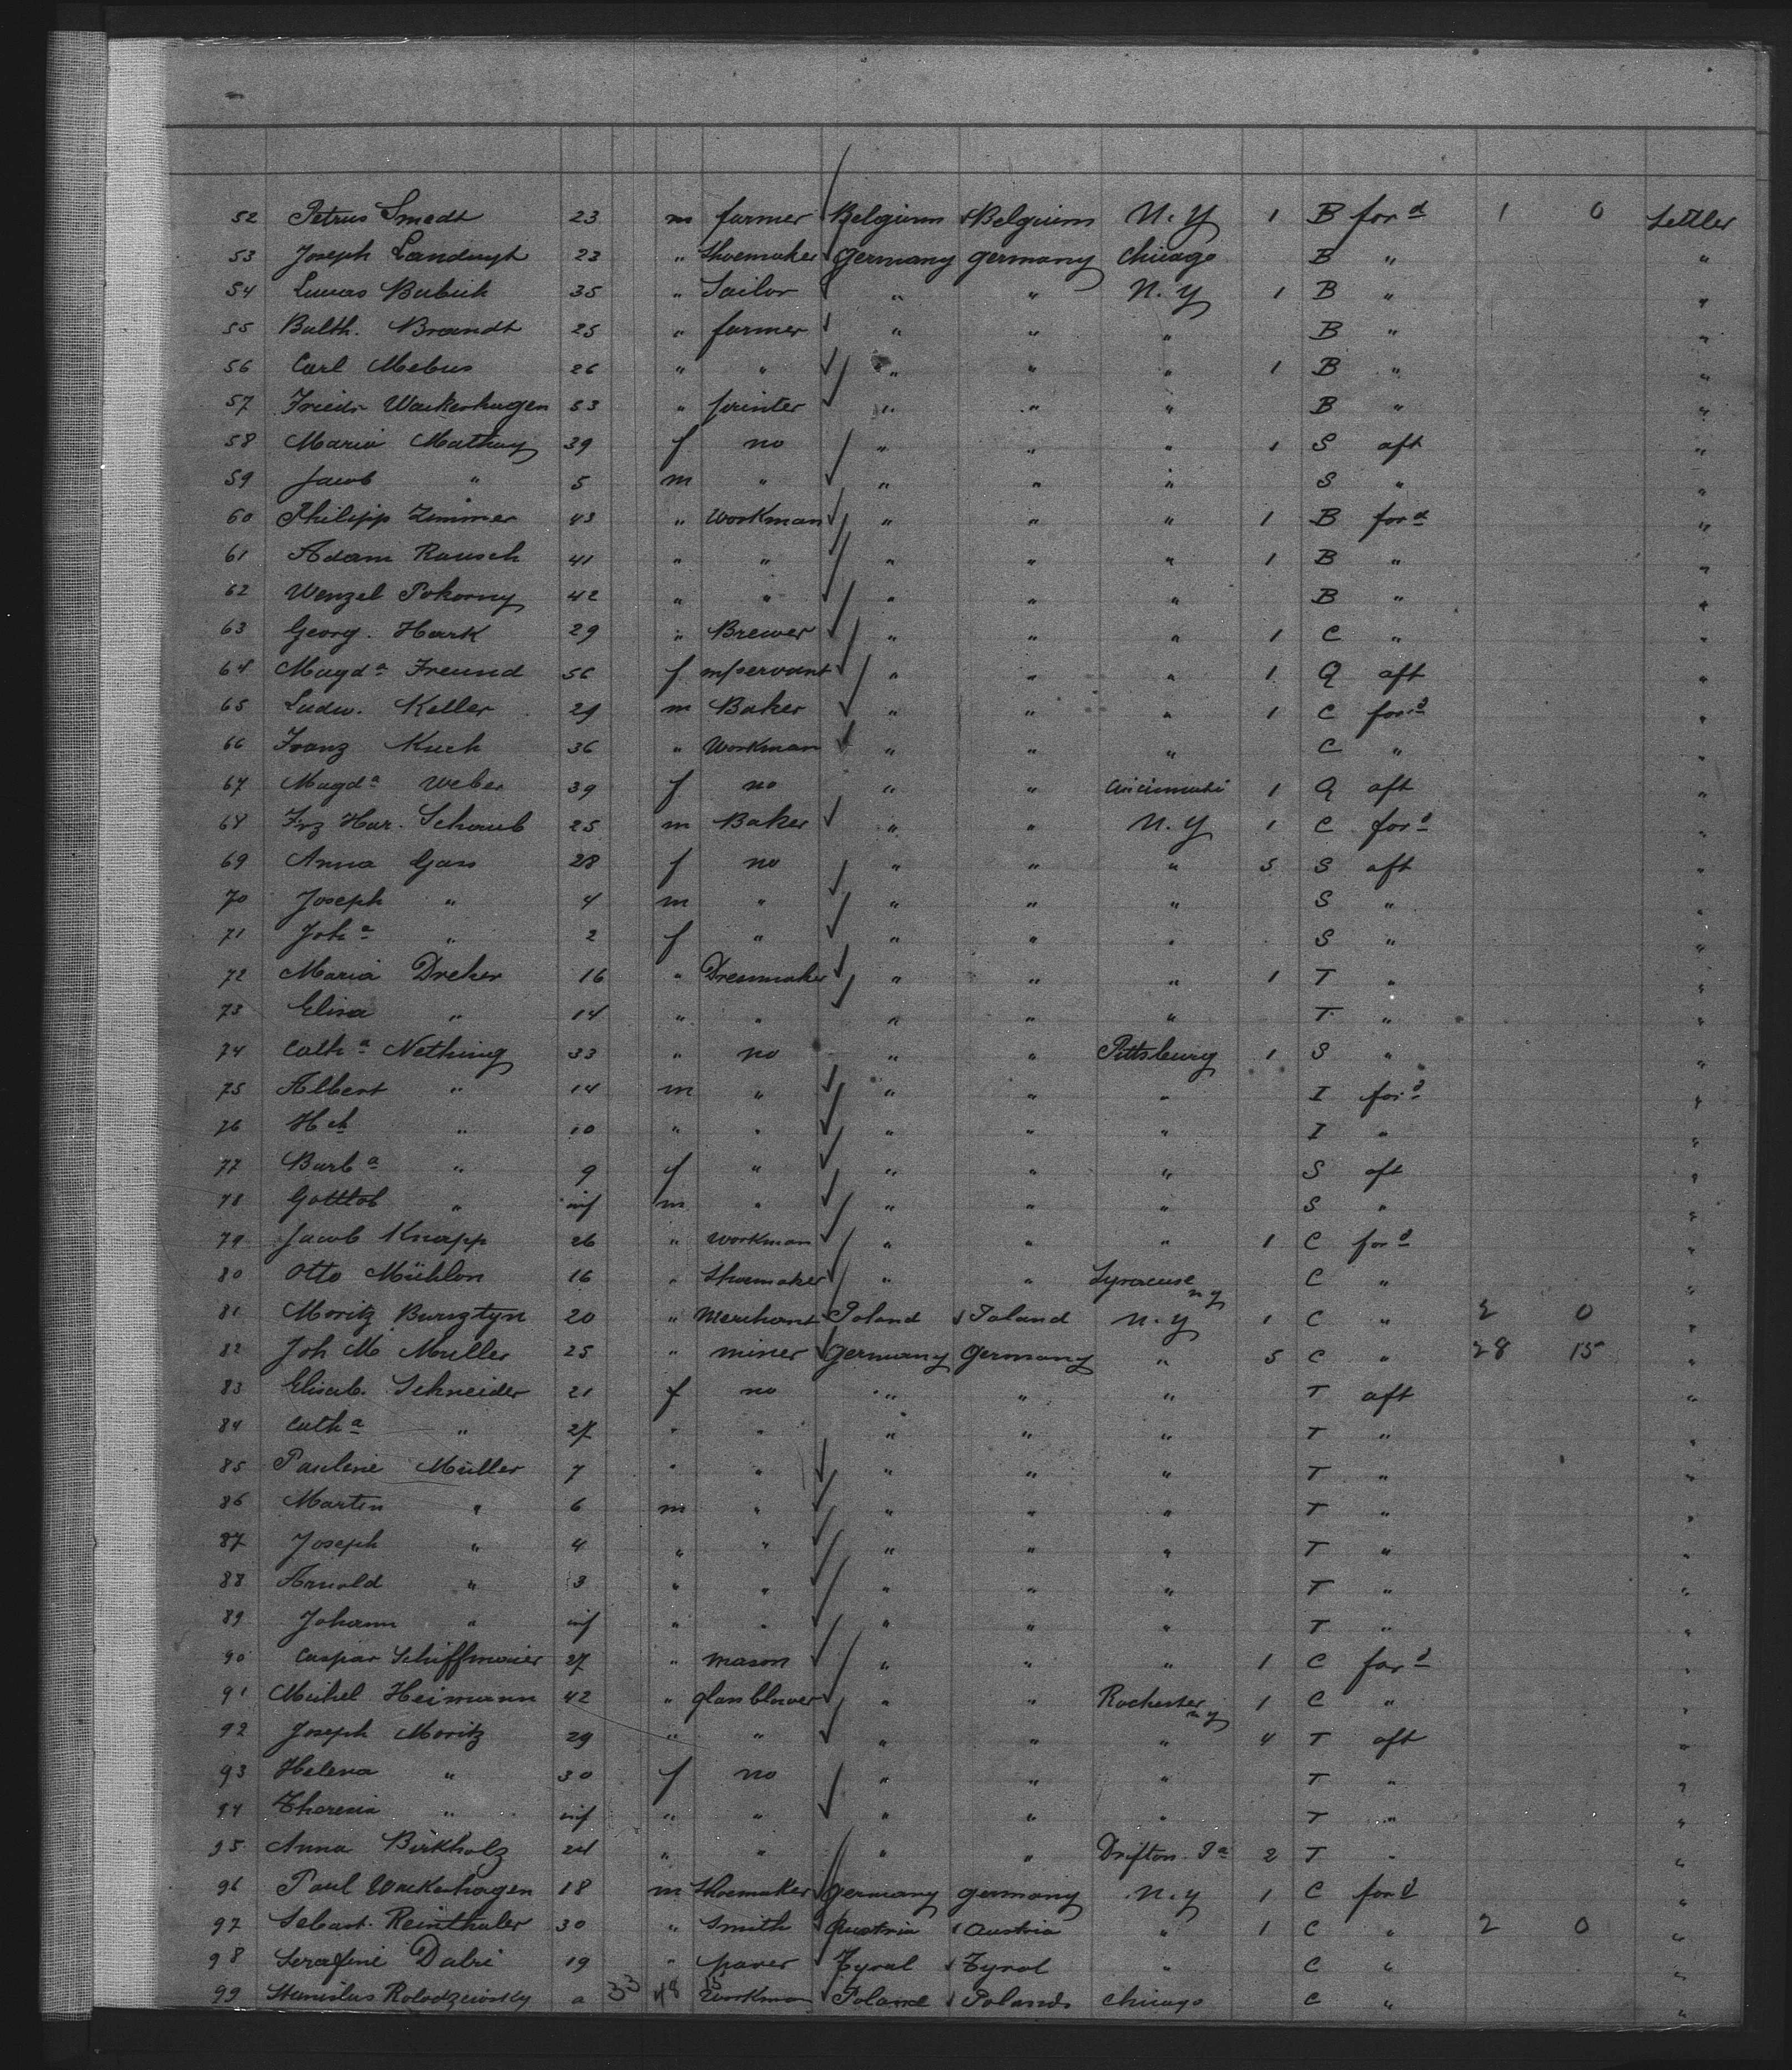 52 Petrus Smedt 23 m farmer Belgium Belgium N.Y 1 B for d 1 0 Settler
53 Joseph 23 " Shoemaker Germany Germany Chicago B " "
54 35 " Sailor " " N.Y 1 B " "
55 Balth. Brandt 25 " farmer " " " B " "
56 Carl Mebus 26 " " " " " 1 B " "
57 Friedr Wackerhagen 53 " printer " " " B " "
58 Maria Mathuy 39 f no " " " 1 S aft "
59 Jacob " 5 m " " " " S " "
60 Philipp Zimmer 43 " Workman " " " 1 B for d "
61 Adam Rausch 41 " " " " " 1 B " "
62 Wenzel Pokorny 42 " " " " " B " "
63 Georg. Hark 29 " Brewer " " " 1 C " "
64 Magd a Freund 56 f m/servant " " " 1 Q aft "
65 Ludw. Keller 21 m Baker " " " 1 C for d "
66 Franz Kuch 36 " Workman " " " C " "
67 Magd a Weber 39 f no " " Cincinnati 1 Q aft "
68 Frz Har. Schaub 25 m Baker " " N.Y 1 C for d "
69 Anna Gass 28 f no " " " 5 S aft "
70 Joseph " 4 m " " " " S " "
71 Joh a " 2 f " " " " S " "
72 Maria Dreher 16 " Dressmaker " " " 1 T " "
73 Elisa " 14 " " " " " T " "
74 Cath a Nething 33 " no " " Pittsburg 1 S " "
75 Albert " 14 m " " " " I for d "
76 Hch " 10 " " " " " I " "
77 Barb a " 9 f " " " " S aft "
78 Gottlob " inf m " " " " S " "
79 Jacob Knapp 26 " workman " " " 1 C for d "
80 Otto Mühlon 16 " Shoemaker " " Syracuse n y C " "
81 Moritz Bursztyn 20 " Merchant Poland Poland N.Y 1 C " 2 0 "
82 Joh M Muller 25 " miner Germany Germany " 5 C " 28 15 "
83 Elisab. Schneider 21 f no " " " T aft "
84 Cath a " 27 " " " " " T " "
85 Pauline Müller 7 " " " " " T " "
86 Martin " 6 m " " " " T " "
87 Joseph " 4 " " " " " T " "
88 Arnold " 3 " " " " " T " "
89 Johann " inf " " " " " T " "
90 Caspar Schiffmaier 27 " mason " " " 1 C for d "
91 Michel Heimann 42 " glass blower " " Rochester n y 1 C " "
92 Joseph Moritz 29 " " " " " 4 T aft "
93 Helena " 30 f no " " " T " "
94 Theresia " inf " " " " " T " "
95 Anna Birkholz 24 " " " " Drifton Pa 2 T " "
96 Paul Wackerhagen 18 m Shoemaker Germany Germany N.Y 1 C for d "
97 Sebast. Reinthaler 30 " Smith Austria Austria " 1 C " 2 0 "
98 Serafine Dalri 19 " paver Tyrol Tyrol " C " "
99 Stanislus 33 48 Workman Poland Poland Chicago C " "